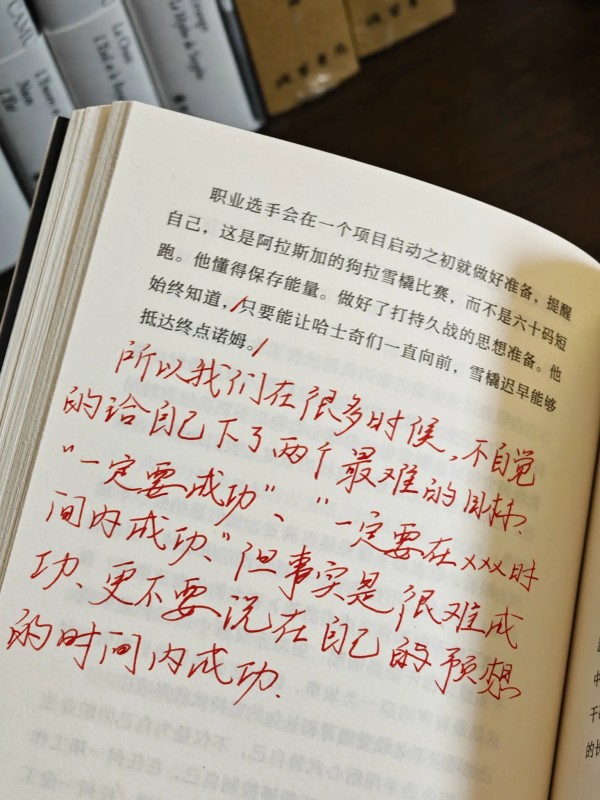 职业选手会在一个项目启动之初就做好准备，提醒
自己，这是阿拉斯加的狗拉雪橇比赛，而不是六十码短
跑。他懂得保存能量。做好了打持久战的思想准备。他
始终知道，只要能让哈士奇们一直向前，雪橇迟早能够
抵达终点诺姆。
所以我们在很多时候，不自觉
的给自己下了两个最难的目标.
“一定要成功”、“一定要在xxx时
间内成功.”但事实是很难成
功、更不要说在自己的预想
的时间内成功.